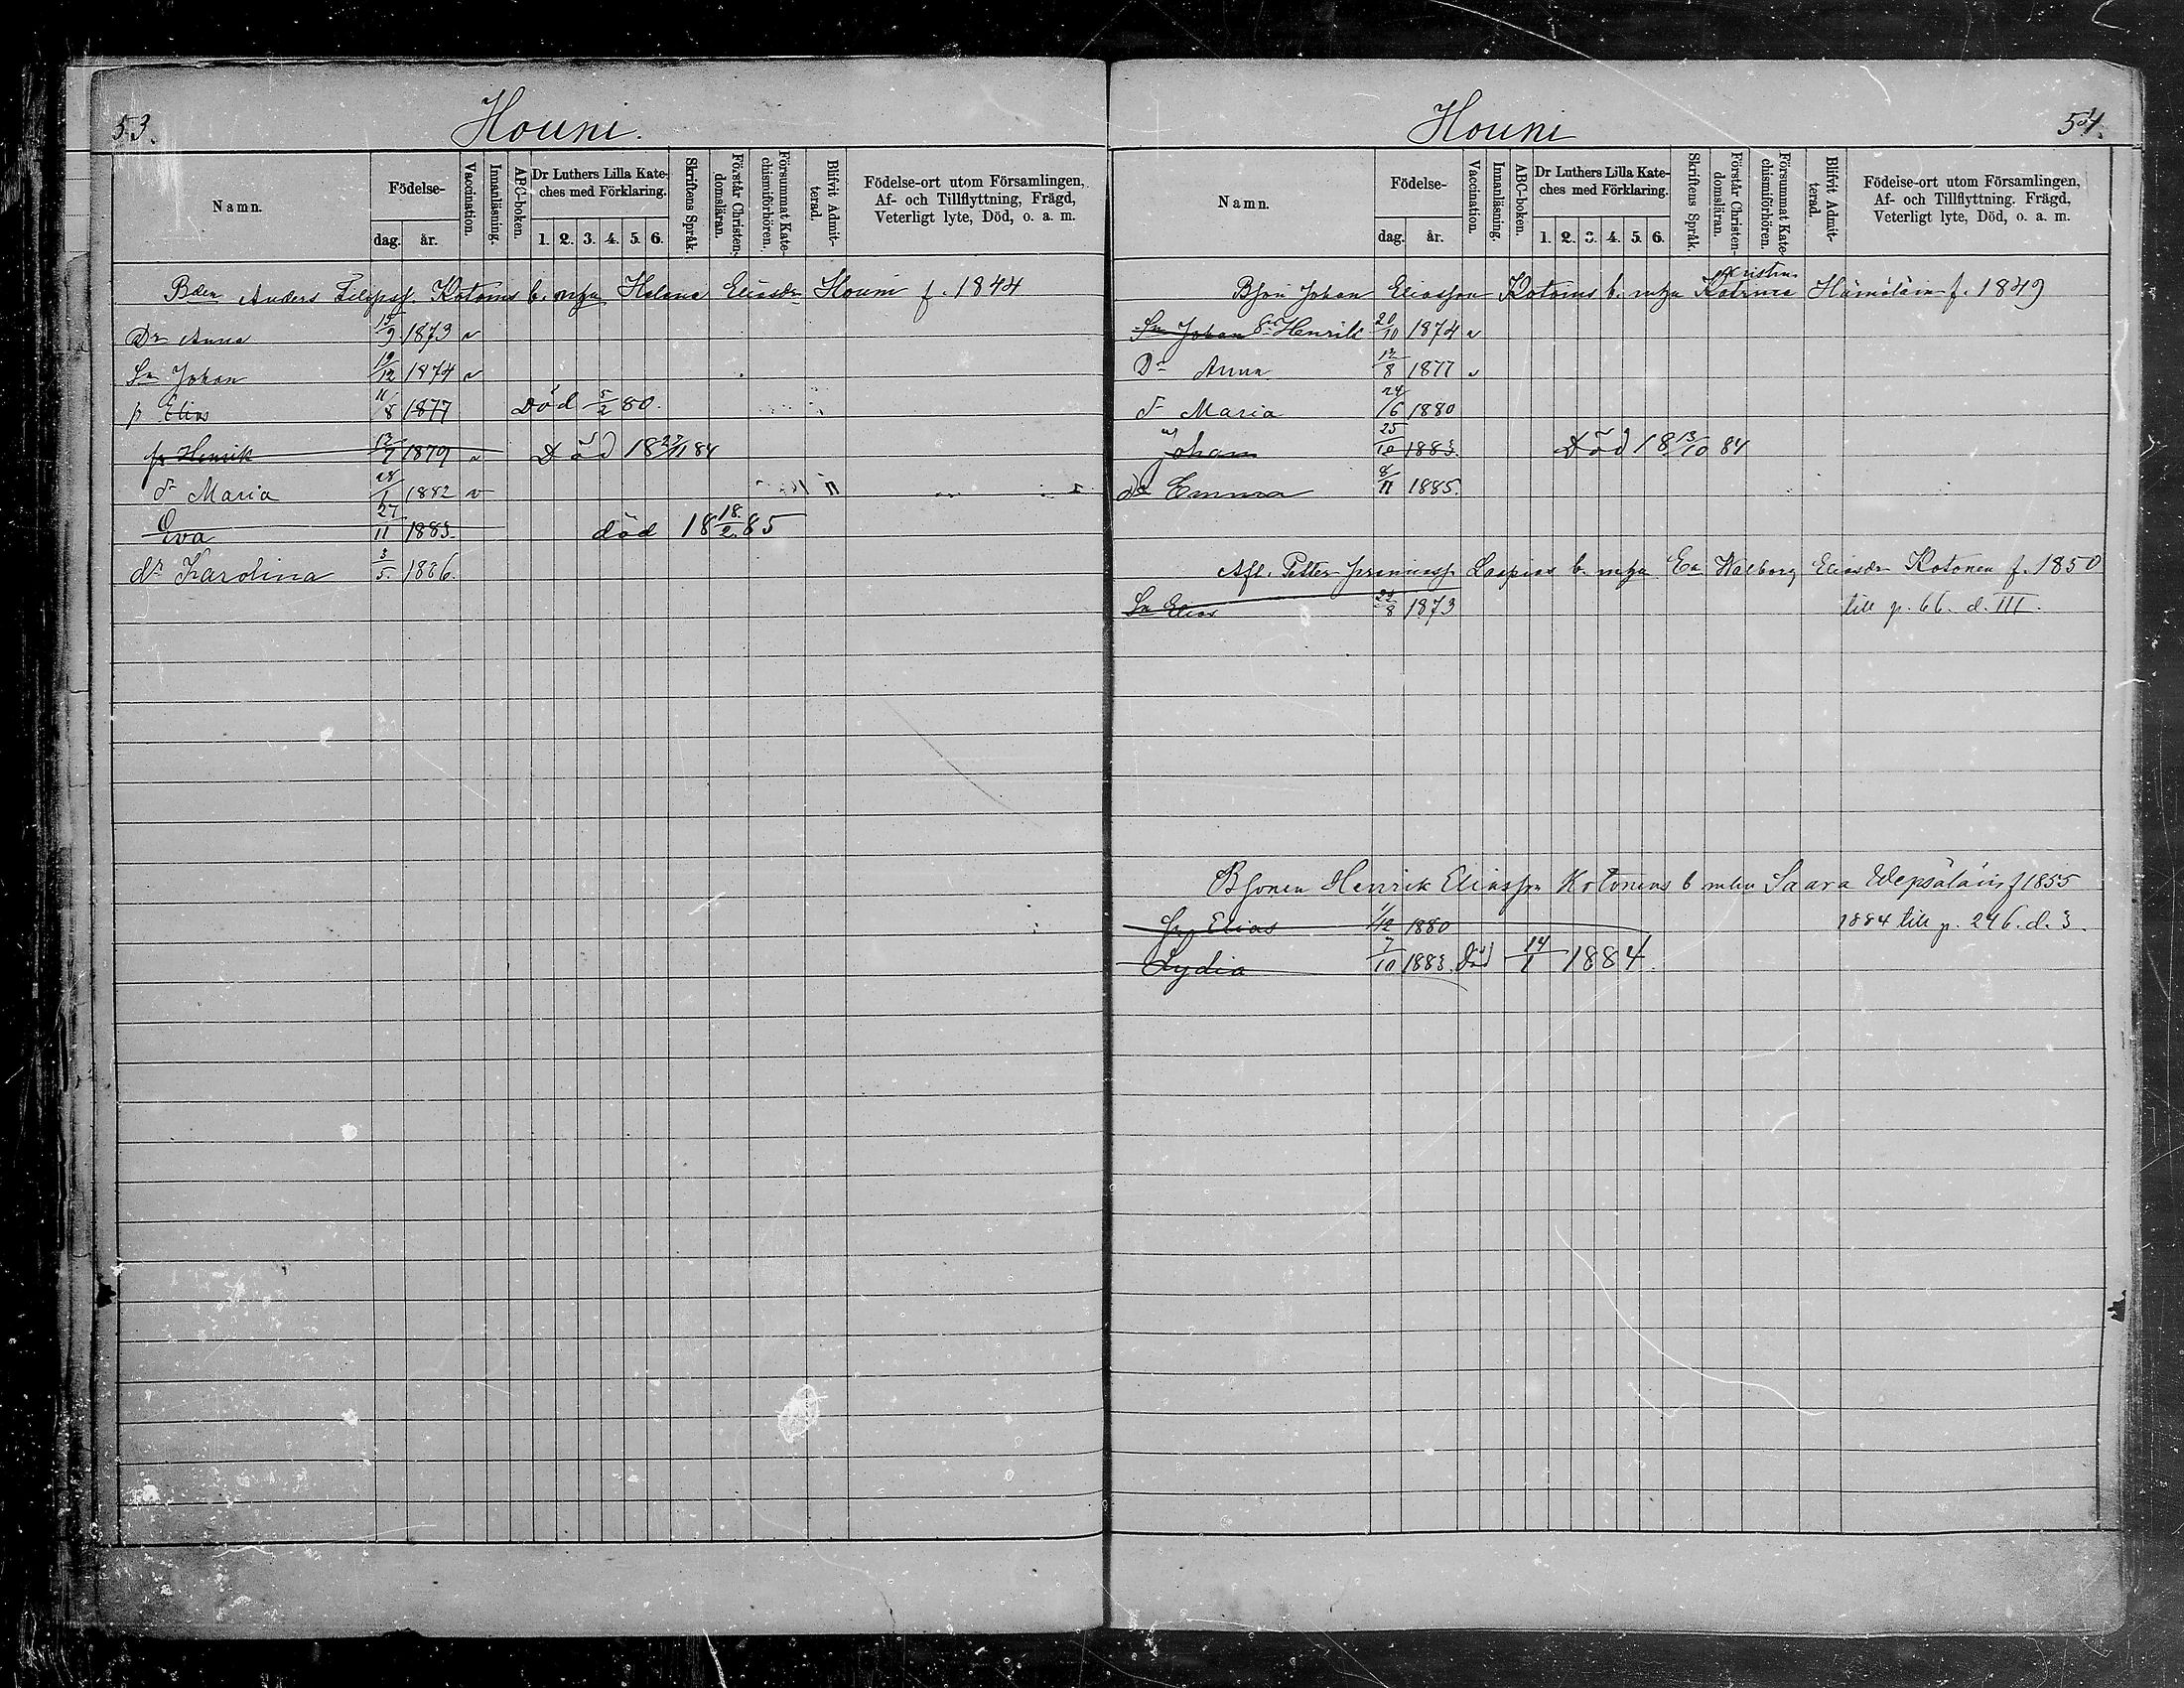 53.
Houni.
Namn.
Födelse-
dag.
år.
Vaccination.
Innanläsning.
ABC-boken.
Dr Luthers Lilla Kate-
ches med Förklaring.
1. 2. 3. 4. 5. 6.
Skriftens Språk.
Förstår Christen-
domsläran.
Försummat Kate-
chismiförhören.
Blifvit Admit-
terad.
Födelse-ort utom Församlingen,
Af- och Tillflyttning, Frägd,
Veterligt lyte, Död, o. a. m.
Anders Filipsf. Kotonens b. m. Helena Eliasdr Houni f. 1844
Dr Anna 15/9 1873 v
Sn Johan 19/12 1874 v
Elias 11/8 1877 Död 5/2 80.
Henrik 12/7 1879 v Död 18 27/11 84
dr Maria 28/1 1882 v
Eva 27/11 1883. död 18 18/2 85
dr Karolina 3/5. 1886.
54.
Houni
Namn.
Födelse-
dag.
år.
Vaccination.
Innanläsning.
ABC-boken.
Dr Luthers Lilla Kate-
ches med Förklaring.
1. 2. 3. 4. 5. 6.
Skriftens Språk.
Förstår Christen-
domsläran.
Försummat Kate-
chismiförhören.
Blifvit Admit-
terad.
Födelse-ort utom Församlingen,
Af- och Tillflyttning. Frägd,
Veterligt lyte, Död, o. a. m.
Kristina
Bson Johan Eliasson Kotonens b. m. Katrina Hämäläin f. 1849
Sn Johan Sn Henrik 20/10 1874 v
Dr Anna 12/8 1877 v
dr Maria 24/6 1880
Johan 25/10 1883. Död 18 13/10 84
dr Emma 8/11 1885.
Afl. Petter Laapias b. m. Ev. Walborg Eliasdr Kotonen f. 1850
Sn Elias 22/8 1873 till p. 66. d. III.
Bsonen Henrik Eliasson Kotonens b Saara Wepsäläin f 1855
Elias 1/12 1880 1884 till p. 246. d. 3.
Lydia 7/10 1883. Död 14/1 1884.